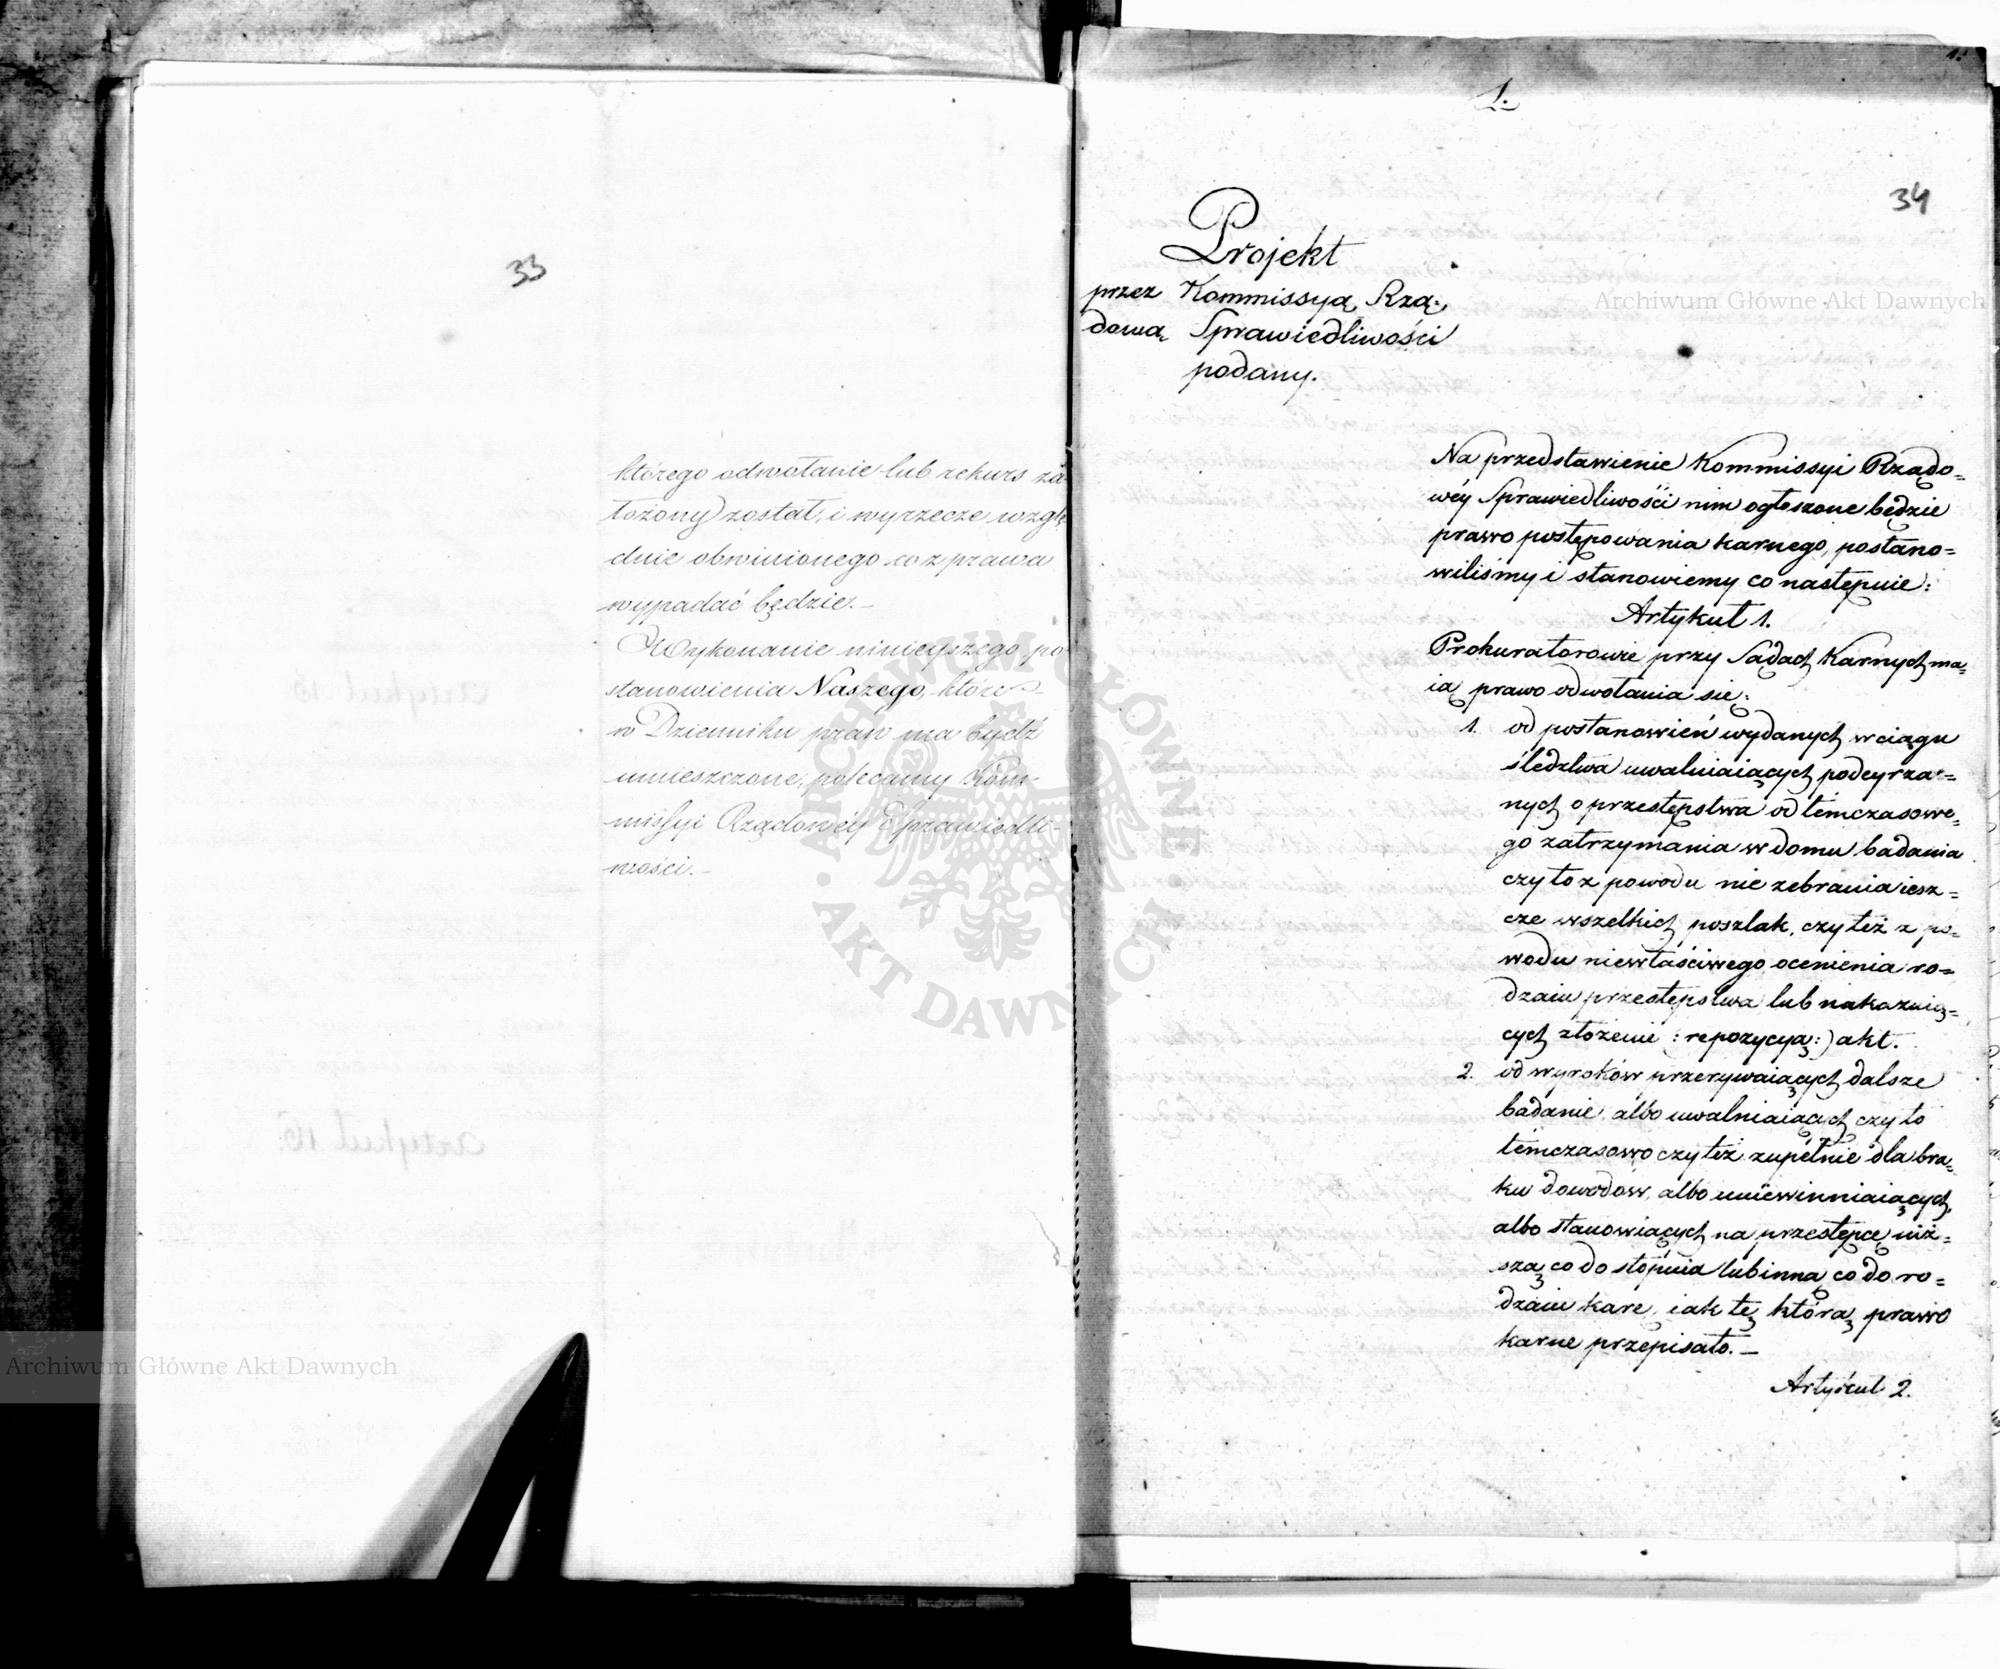 33
którego odwołanie lub rekurs za
łożony został, i wyrzecze wzglę
dnie obwinionego co z prawa
wypadać będzie.-
Wykonanie ninieyszego po
stanowienia Naszego, które
w Dzienniku praw ma bydź
umieszczone, polecamy Kom-
missyi Rządowéy Sprawiedli-
wości.-
1.
34
Projekt
przez Kommissyą Rzą-
dową Sprawiedliwości
podany.
Na przedstawienie Kommissyi Rządo=
wéy Sprawiedliwości nim ogłoszone będzie
prawo postępowania karnego, postano=
wiliśmy i stanowiemy co następuie:
Artykuł 1.
Prokuratorowie przy Sądach Karnych ma=
ią prawo odwołania się:
1. od postanowień wydanych w ciągu
śledztwa uwalniaiących podeyrza=
nych o przestępstwa od témczasowe=
go zatrzymania w domu badania
czy to z powodu nie zebrania iesz=
cze wszelkich poszlak, czy też z po=
wodu niewłaściwego ocenienia ro=
dzaiu przestępstwa lub nakazuią=
cych złożenie (:repozycyą:) akt.
2. od wyroków przerywaiących dalsze
badanie, albo uwalniaiących czy to
témczasowo czy też zupełnie dla bra=
ku dowodów, albo uniewinniaiących,
albo stanowiących na przestępcę niż=
szą co do stopnia lub inną co do ro=
dzaiu karę, iak tę którą prawo
karne przepisało.-
Artykuł 2.
Archiwum Główne Akt Dawnych
Archiwum Główne Akt Dawnych
ARCHIWUM GŁÓWNE
AKT DAWNYCH